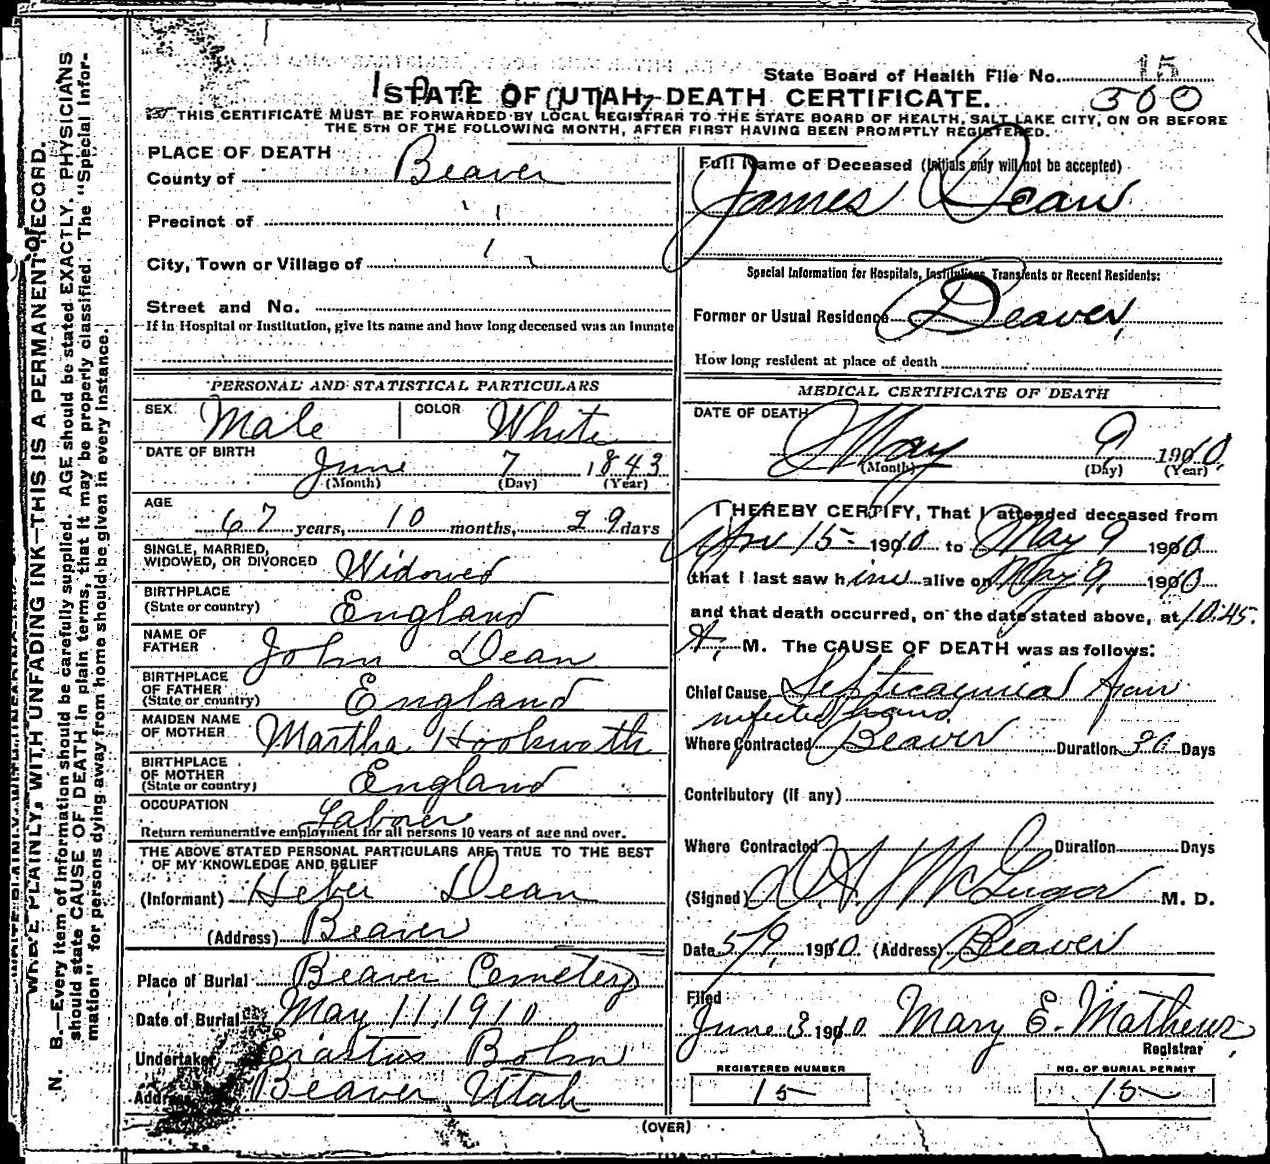 State Board of Health File No. 15
300
STATE OF UTAH, DEATH CERTIFICATE.
THIS CERTIFICATE MUST BE FORWARDED BY LOCAL REGISTRAR TO THE STATE BOARD OF HEALTH, SALT LAKE CITY, ON OR BEFORE
THE 5TH OF THE FOLLOWING MONTH, AFTER FIRST HAVING BEEN PROMPTLY REGISTERED.
WRITE PLAINLY, WITH UNFADING INK—THIS IS A PERMANENT RECORD.
N. B.—Every item of information should be carefully supplied. AGE should be stated EXACTLY. PHYSICIANS
should state CAUSE OF DEATH in plain terms, that it may be properly classified. The "Special Infor-
mation" for persons dying away from home should be given in every instance.
PLACE OF DEATH
County of Beaver
Precinct of " "
City, Town or Village of " "
Street and No.
If in Hospital or Institution, give its name and how long deceased was an inmate
PERSONAL AND STATISTICAL PARTICULARS
SEX Male COLOR White
DATE OF BIRTH June 7 1843
(Month) (Day) (Year)
AGE
67 years, 10 months, 29 days
SINGLE, MARRIED,
WIDOWED, OR DIVORCED Widowed
BIRTHPLACE
(State or country) England
NAME OF
FATHER John Dean
BIRTHPLACE
OF FATHER
(State or country) England
MAIDEN NAME
OF MOTHER Martha Hookwath
BIRTHPLACE
OF MOTHER
(State or country) England
OCCUPATION Laborer
Return remunerative employment for all persons 10 years of age and over.
THE ABOVE STATED PERSONAL PARTICULARS ARE TRUE TO THE BEST
OF MY KNOWLEDGE AND BELIEF
(Informant) Heber Dean
(Address) Beaver
Place of Burial Beaver Cemetery
Date of Burial May 11, 1910
Undertaker Erastus Bohn
Address Beaver Utah
Full Name of Deceased (Initials only will not be accepted)
James Dean
Special Information for Hospitals, Institutions, Transients or Recent Residents:
Former or Usual Residence Beaver,
How long resident at place of death
MEDICAL CERTIFICATE OF DEATH
DATE OF DEATH
May 9 1910
(Month) (Day) (Year)
I HEREBY CERTIFY, That I attended deceased from
Apr 15- 1910 to May 9 1910
that I last saw him alive on May 9, 1910
and that death occurred, on the date stated above, at 10:45.
A, M. The CAUSE OF DEATH was as follows:
Chief Cause Septicaemia from
infected hand
Where Contracted Beaver Duration 30 Days
Contributory (if any)
Where Contracted Duration Days
(Signed) M. D.
Date 5/9, 1910. (Address) Beaver
Filed
June 3 1910 Mary E. Mathews,
Registrar
REGISTERED NUMBER
15
NO. OF BURIAL PERMIT
15
(OVER)